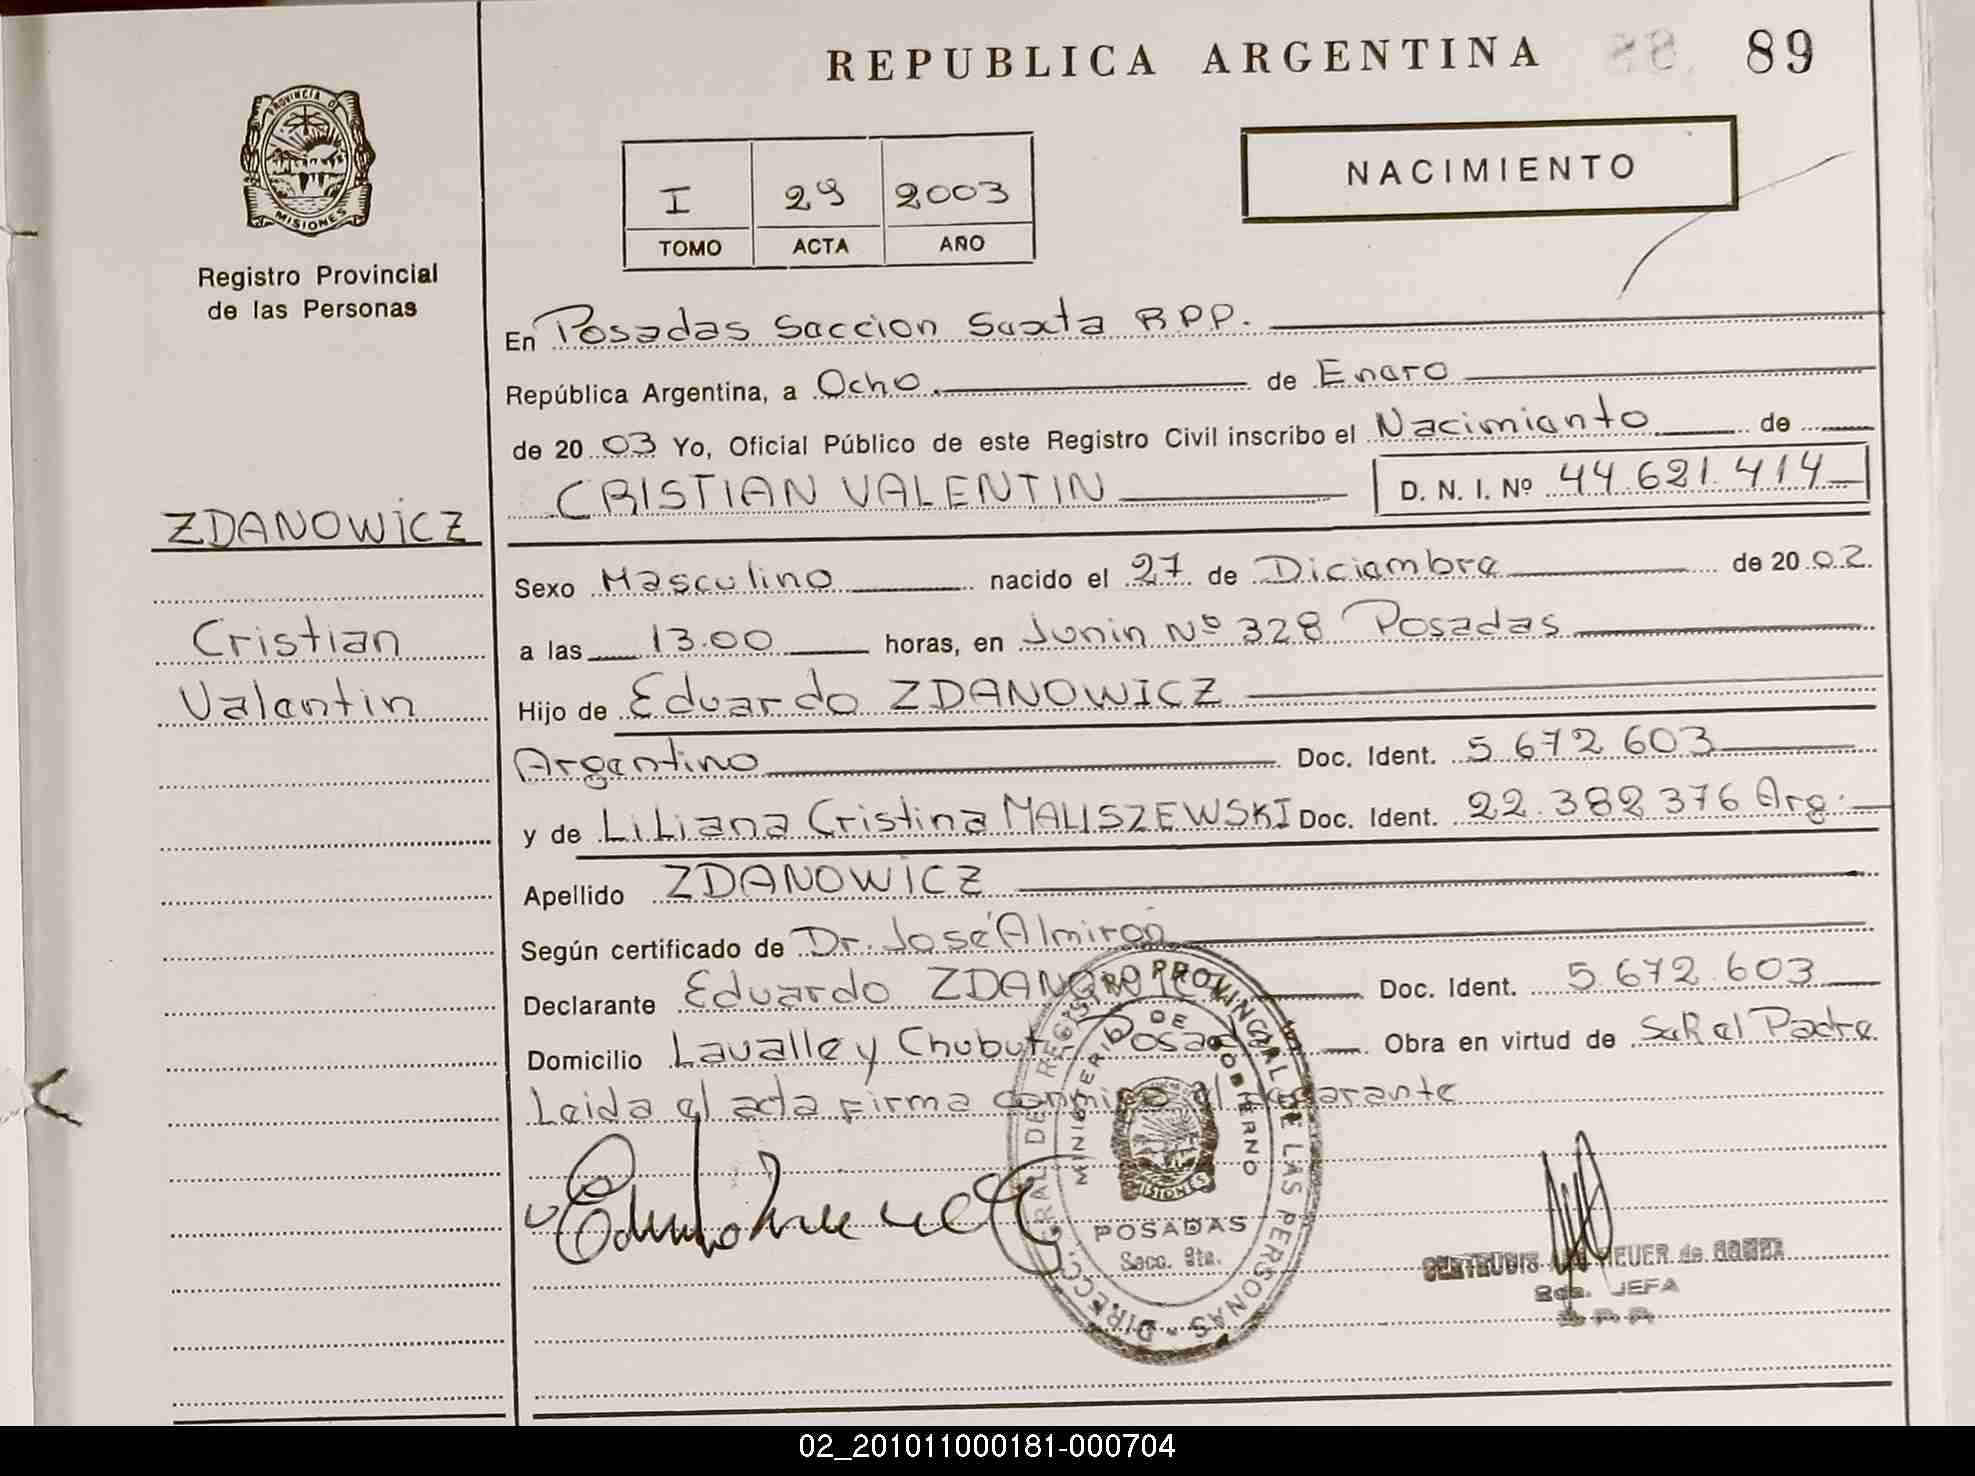 REPUBLICA ARGENTINA 88. 89
PROVINCIA DE
MISIONES
Registro Provincial
de las Personas
I 29 2003
TOMO ACTA AÑO
NACIMIENTO
En Posadas Seccion Sexta R.P.P.
República Argentina, a Ocho de Enero
de 2003 Yo, Oficial Público de este Registro Civil inscribo el Nacimiento de
CRISTIAN VALENTIN D. N. I. Nº 44.621.414
ZDANOWICZ
Cristian
Valentin
Sexo Masculino nacido el 27 de Diciembre de 2002.
a las 13.00 horas, en Junin Nº 328 Posadas
Hijo de Eduardo ZDANOWICZ
Argentino Doc. Ident. 5.672.603
y de Liliana Cristina MALISZEWSKI Doc. Ident. 22.382.376 Arg.
Apellido ZDANOWICZ
Según certificado de Dr. José Almiron
Declarante Eduardo ZDANOWICZ Doc. Ident. 5.672.603
Domicilio Lavalle y Chubut Posadas Obra en virtud de Ser el Padre
Leida el acta firma conmigo el declarante
DIRECC. GRAL DEL REGISTRO PROVINCIAL DE LAS PERSONAS
MINISTERIO DE GOBIERNO
MISIONES
POSADAS
Secc. 6ta.
HEUER de
2da. JEFA
02_201011000181-000704